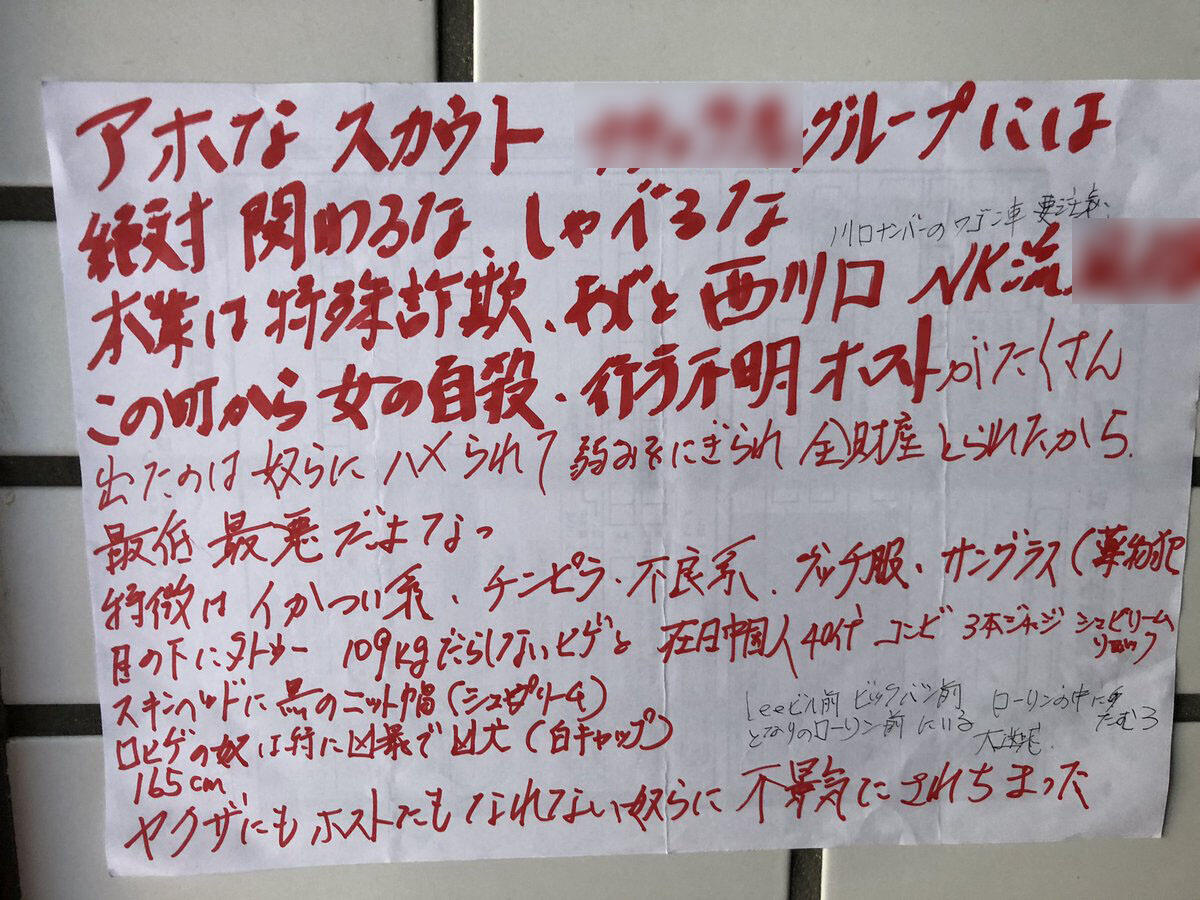 アホな スカウト グループには
絶対 関わるな、しゃべるな
川口ナンバーのワゴン車 要注意、
本業は特殊詐欺、あと 西川口 NK流
この町から女の自殺、行方不明 ホストがたくさん
出たのは 奴らに ハメられて 弱みをにぎられ 全財産とられたから.
最低 最悪 だよなっ
特徴は イかつい系、チンピラ・不良系、グッチ服、サングラス(薬物犯
目の下にタトゥー 109kgだらしないヒゲと 在日中国人40代 コンビ 3本ジャージ シュプリーム
スキンヘッドに黒のニット帽(シュプリーム)
口ヒゲの奴は特に凶暴で 凶犬(白キャップ)
165cm
Leeビル前 ビックバン前 ローリンの中に
となりのローリン前 にいる たむろ
ヤクザにも ホストにも なれてない奴らに 不景気にされちまった